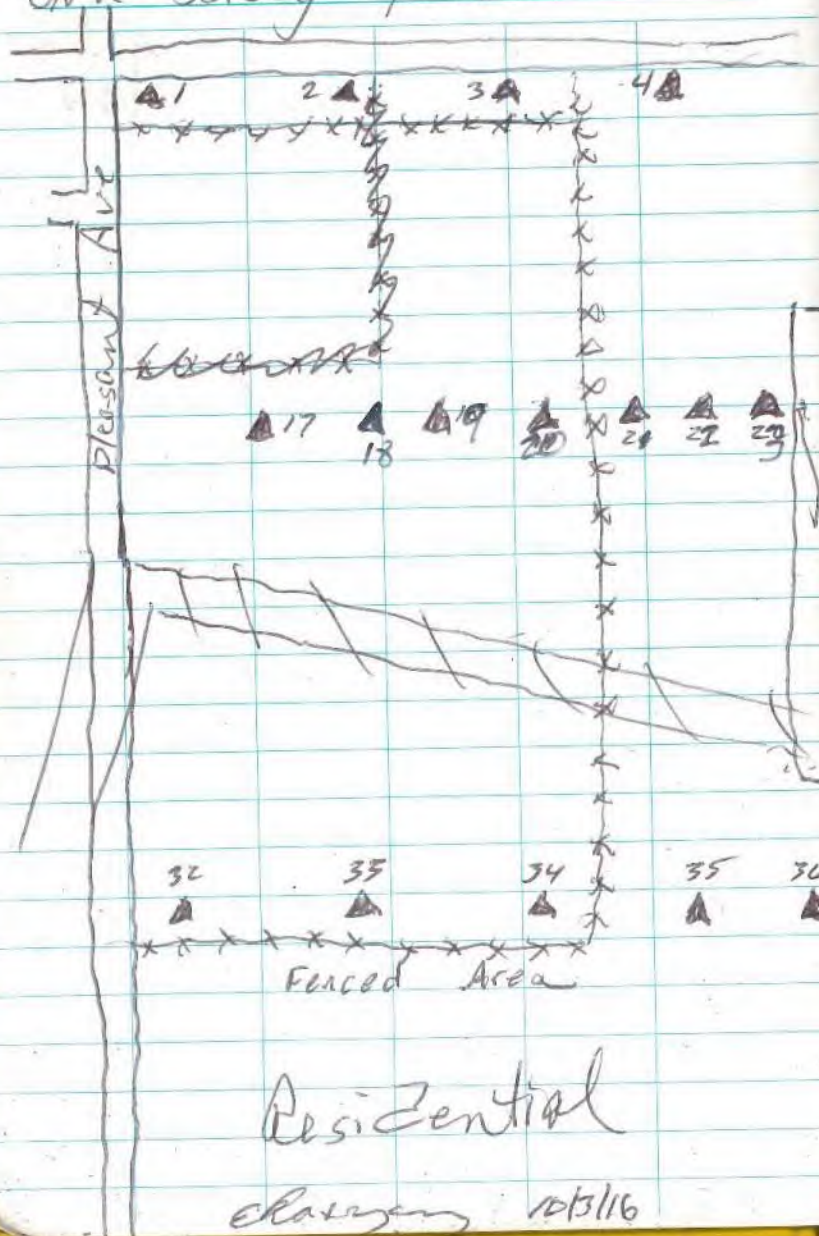 1 2 3 4
Pleasant Ave
17 18 19 20 21 22 23
32 33 34 35
Fenced Area
Residential
10/3/16